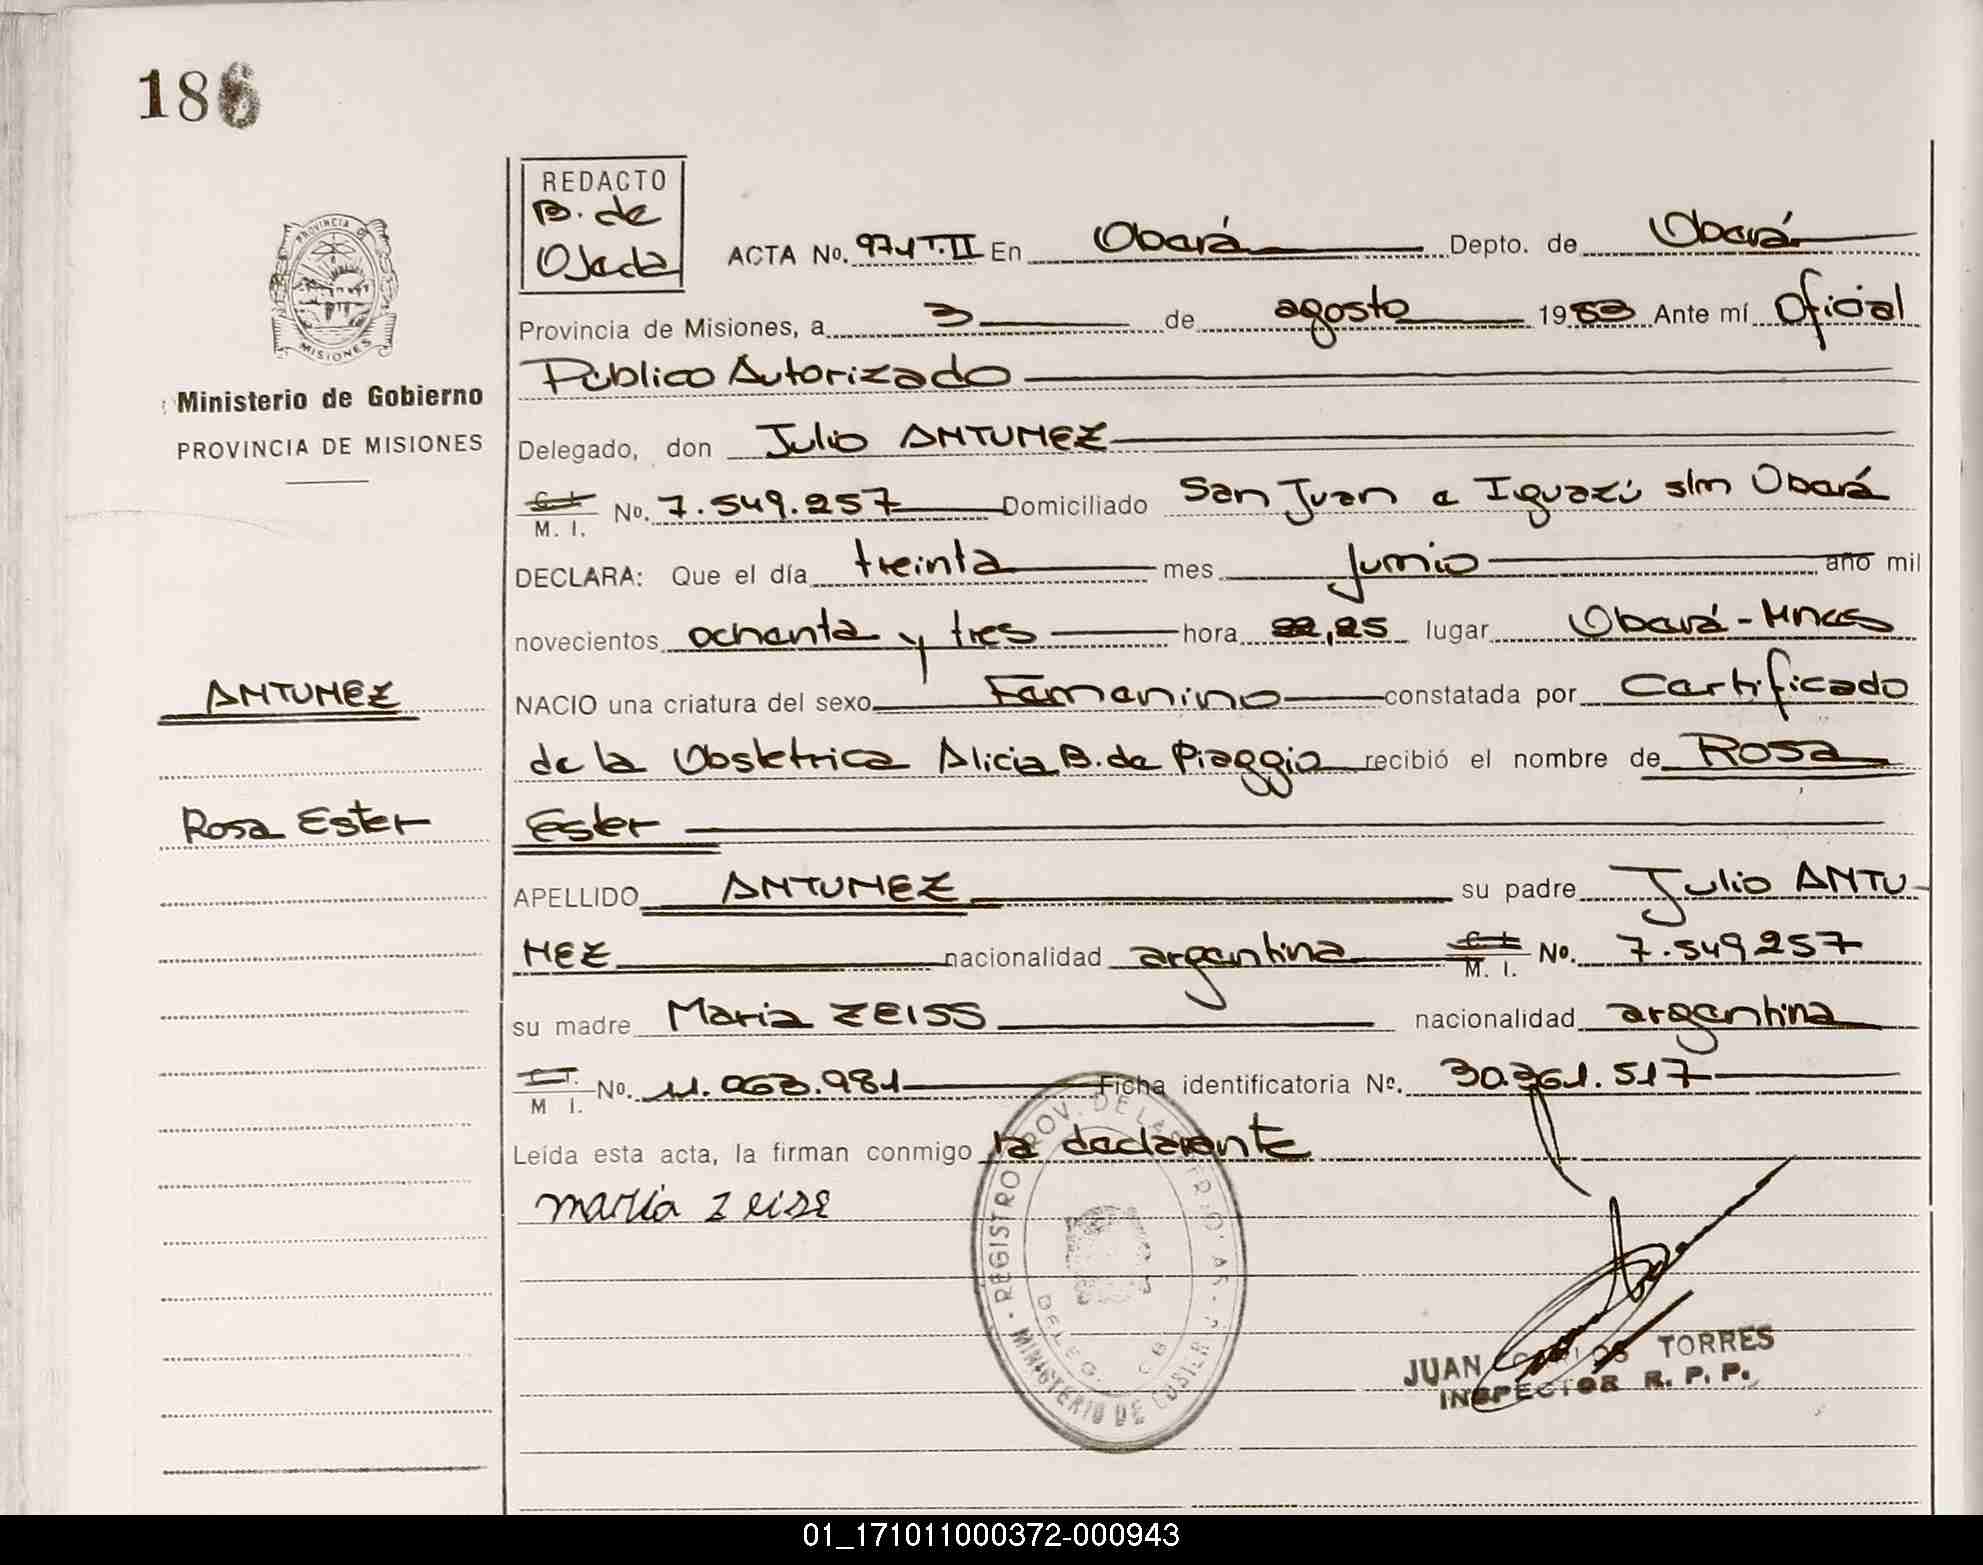 186
REDACTO
B. de
Ojeda
ACTA No. 971 T. II En Oberá Depto. de Oberá
Provincia de Misiones, a 3 de agosto 1983 Ante mí Oficial
Público Autorizado
PROVINCIA DE
MISIONES
Ministerio de Gobierno
PROVINCIA DE MISIONES
Delegado, don Julio ANTUNEZ
C. I.
M. I. No. 7.549.257 Domiciliado San Juan e Iguazú s/n Oberá
DECLARA: Que el día treinta mes junio año mil
novecientos ochenta y tres hora 22,25 lugar Oberá - Mnes
ANTUNEZ
NACIO una criatura del sexo Femenino constatada por Certificado
de la Obstetrica Alicia B. de Piaggio recibió el nombre de Rosa
Rosa Ester
Ester
APELLIDO ANTUNEZ su padre Julio ANTU-
NEZ nacionalidad argentina C. I. M. I. No. 7.549257
su madre Maria ZEISS nacionalidad argentina
M I. No. 11.063.981 Ficha identificatoria No. 30.361.517
Leída esta acta, la firman conmigo la declarante
maria zeise
REGISTRO PROV. DE LAS
MINISTERIO DE
DELEG.
JUAN CARLOS TORRES
INSPECTOR R. P. P.
01_171011000372-000943